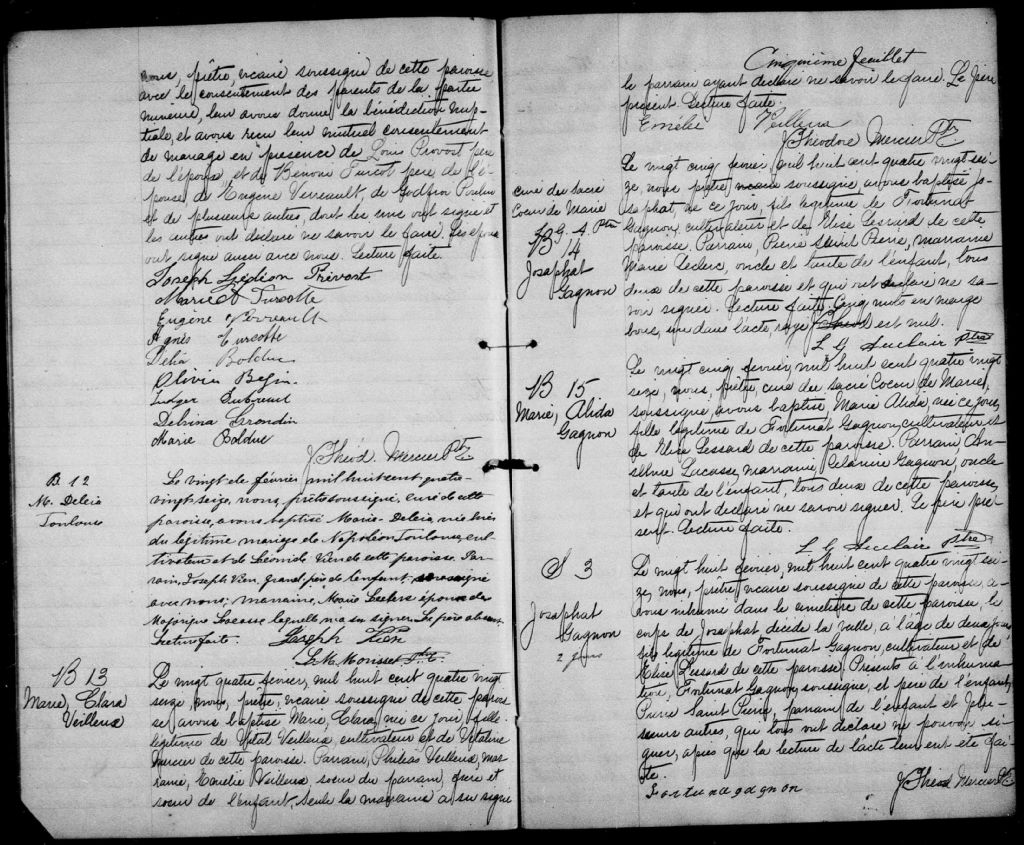 nous, prêtre, vicaire soussigné de cette paroisse
avec le consentement des parents de la partie
mineure, leur avons donné la bénédiction nup-
tiale, et avons reçu leur mutuel consentement
de mariage en présence de Louis Provost père
de l'époux et de Benoni Turcot père de l'é-
pouse, de Eugène Verreault, de Godfroi Poulin
et de plusieurs autres, dont les uns ont signé et
les autres ont déclaré ne savoir le faire. Les époux
ont signé aussi avec nous. Lecture faite.
Joseph Gédéon Prévost
Marie Turcotte
Eugène Verreault
Agnès Turcotte
Délia Bolduc
Olivia Begin
Ludger Dubreuil
Delvina Grondin
Marie Bolduc
J Théod. Mercier Ptre
B 12
M. Delcia
Toulouse
Le vingt de février mil huit cent quatre-
vingt-seize, nous, prêtre soussigné, curé de cette
paroisse, avons baptisé Marie-Delcia, née hier
du légitime mariage de Napoléon Toulouse, cul-
tivateur et de Léonide Vien de cette paroisse. Par-
rain, Joseph Vien, grand père de l'enfant, soussigné
avec nous; marraine, Marie Leclerc épouse de
Majorique Lacasse laquelle n'a su signer. Le père absent.
Lecture faite. Joseph Vien
L. M. Morisset Ptre C.
B 13
Marie, Clara
Veilleux
Le vingt quatre février, mil huit cent quatre vingt
seize, nous, prêtre, vicaire soussigné de cette parois-
se avons baptisé Marie, Clara, née ce jour, fille
légitime de Vital Veilleux, cultivateur et de Vitaline
Mercier de cette paroisse. Parrain, Philéas Veilleux, mar-
raine, Emélie Veilleux soeur du parrain, frère et
soeur de l'enfant. Seule la marraine a su signé
Cinquième feuillet
le parrain ayant déclaré ne savoir le faire. Le père
présent. Lecture faite.
Emélie Veilleux
J Théodore Mercier Ptr
curé du sacré
Coeur de Marie
L G. A. Ptre
B 14
Josaphat
Gagnon
Le vingt cinq février, mil huit cent quatre vingt sei-
ze, nous prêtre vicaire soussigné avons baptisé Jo-
saphat, né ce jour, fils légitime de Fortunat
Gagnon, cultivateur et de Elise Lessard de cette
paroisse. Parrain, Pierre Saint Pierre, marraine
Marie Leclerc, oncle et tante de l'enfant, tous
deux de cette paroisse et qui ont déclaré ne sa-
voir signer. Lecture faite. Cinq mots en marge
bons, un dans l'acte, rayé est nul.
L. G. Auclair ptre
B 15
Marie, Alida
Gagnon
Le vingt cinq février, mil huit cent quatre vingt
seize, nous, prêtre, curé du Sacré Coeur de Marie,
soussigné, avons baptisé Marie Alida, née ce jour,
fille légitime de Fortunat Gagnon, cultivateur et
de Elise Lessard de cette paroisse. Parrain, An-
selme Lacasse, marraine, Célanire Gagnon, oncle
et tante de l'enfant, tous deux de cette paroisse,
et qui ont déclaré ne savoir signer. Le père pré-
sent. Lecture faite.
L. G. Auclair ptre
S 3
Josaphat
Gagnon
2 jours
Le vingt huit février, mil huit cent quatre vingt sei-
ze, nous, prêtre vicaire soussigné de cette paroisse, a-
vons inhumé dans le cimetière de cette paroisse, le
corps de Josaphat décédé la veille, à l'âge de deux jours
fils légitime de Fortunat Gagnon, cultivateur et de
Elise Lessard de cette paroisse. Présents à l'inhuma-
tion, Fortunat Gagnon, soussigné, et père de l'enfant,
Pierre Saint Pierre, parrain de l'enfant et plu-
sieurs autres, qui tous ont déclaré ne pouvoir si-
gner, après que la lecture de l'acte leur ent été fai-
te.
Fortunagagnon
J Théod Mercier Ptr